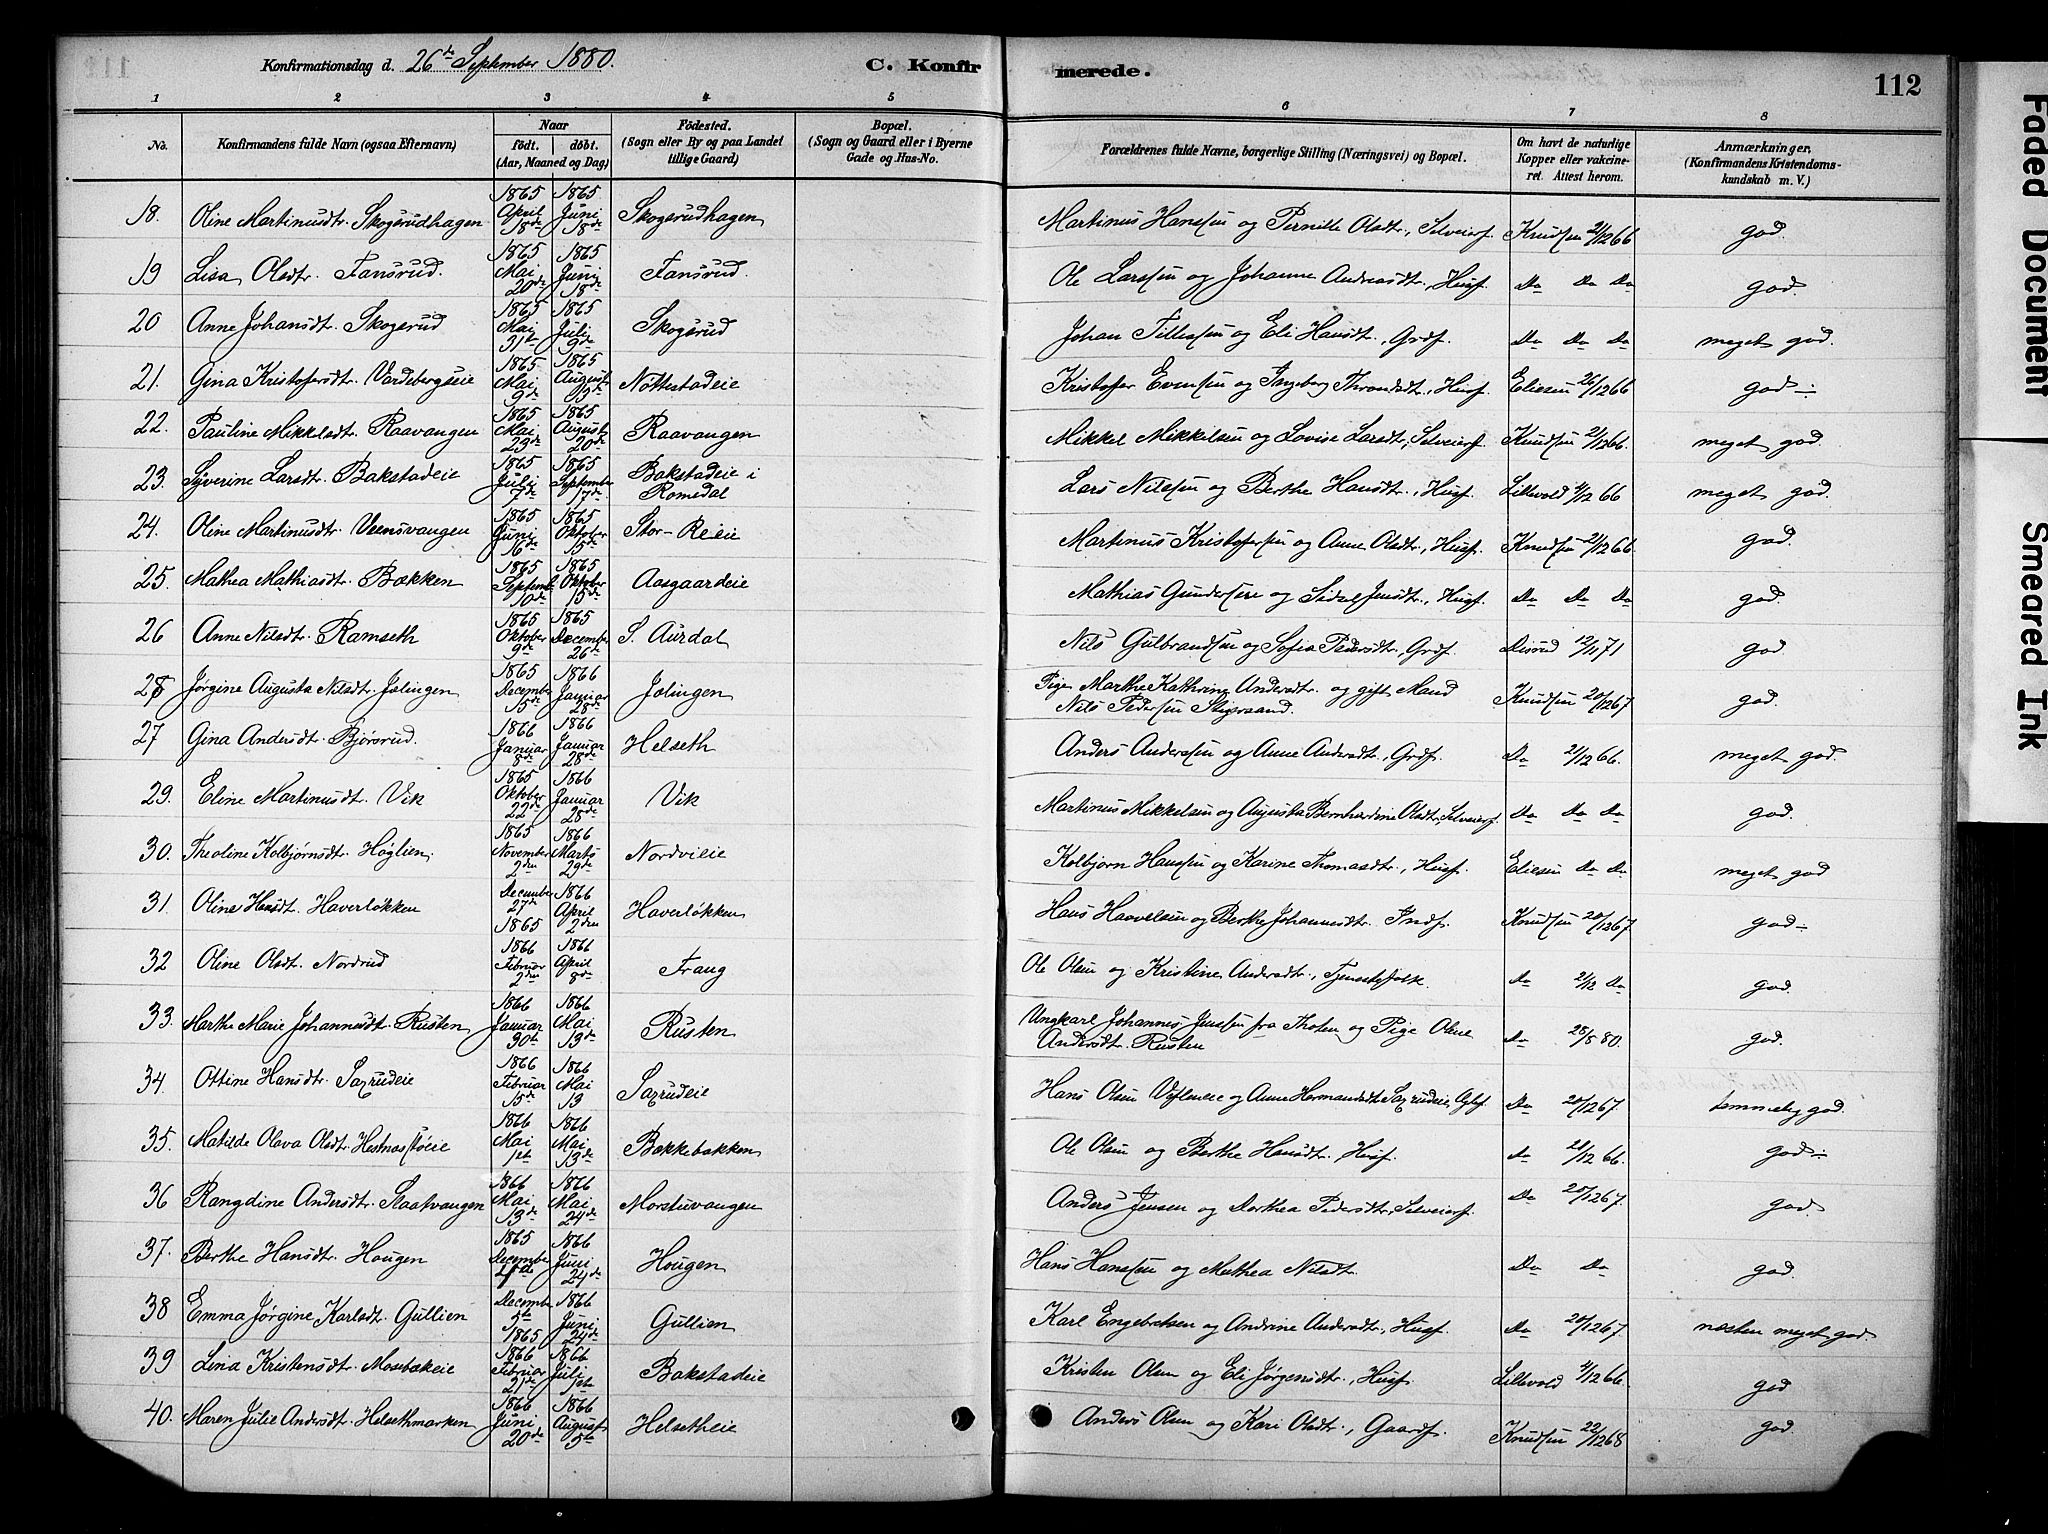 Konfirmationsdag d. 26de September 1880. C. Konfirmerede. 112
1 2 3 4 5 6 7 8
No. Konfirmandens fulde Navn (ogsaa Efternavn) Naar födt. döbt. (Aar, Maaned og Dag) Födested. (Sogn eller By og paa Landet tillige Gaard) Bopæl. (Sogn og Gaard eller i Byerne Gade og Hus-No. Forældrenes fulde Navne, borgerlige Stilling (Næringsvei) og Bopæl. Om havt de naturlige Kopper eller vakcineret. Attest herom. Anmærkninger, (Konfirmandens Kristendomskundskab m. V.)
18. Oline Martinusdtr. Skogsrudhagen 1865 April 18de 1865 Juni 18de Skogsrudhagen Martinus Hanssen og Pernille Olsdtr., Selveierf. Knudsen 21/12 66 god.
19 Lisa Olsdtr. Fansrud. 1865 Mai 20de 1865 Juni 18de Fansrud. Ole Larssen og Johanne Andreasdtr., Husf. Do Do Do god.
20 Anne Johansdtr. Skogsrud 1865 Mai 31te 1865 Juli 9de Skogsrud Johan Tillessen og Eli Hansdtr., Grdf. Do Do Do meget god.
21. Gina Kristofersdtr. Vardebergseie 1865 Mai 9de 1865 August 13de Nøttestadeie Kristoffer Evensen og Ingeborg Throndsdtr., Husf. Eliesen 26/12 66 god
22. Pauline Mikkelsdtr. Raavangen 1865 Mai 23de 1865 August 20de Raavangen Mikkel Mikkelsen og Lovise Larsdtr., Selveierf. Knudsen 21/12 66. meget god.
23. Syverine Larsdtr. Bakstadeie 1865 Juli 7de 1865 September 17de Bakstadeie i Romedal Lars Nilssen og Berthe Hansdtr., Husf. Lillevold 4/12 66 meget god.
24. Oline Martinusdtr. Veensvangen 1865 Juni 16de 1865 Oktober 15de Stor-Reeie Martinus Kristofersen og Anne Olsdtr., Husf. Knudsen 21/12 66. god.
25. Mathea Mathiasdtr. Bækken 1865 Septemb. 10de 1865 Oktober 15de Aasgaardeie Mathias Gundersen og Sidsel Jensdtr., Husf. Do Do Do god.
26 Anne Nilsdtr. Ramseth 1865 Oktober 9de 1865 December 26de S. Aurdal Nils Gulbrandsen og Sofia Pedersdtr., Grdf. Disrud 12/11 71 god
28 Jørgine Augusta Nilsdtr. Jølingen 1865 December 15de 1866 Januar 28de Jølingen Pige Marthe Kathrine Andersdtr. og gift Mand Nils Pedersen Stigersand. Knudsen 20/12 67 god.
27 Gina Andersdtr. Bjørsrud. 1866 Januar 8de 1866 Januar 28de Helseth Anders Anderssen og Anne Andersdtr., Grdf. Do 21/12 66. meget god.
29. Eline Martinusdtr. Vik 1865 Oktober 22de 1866 Januar 28de Vik Martinus Mikkelsen og Augusta Bernhardine Olsdtr., Selveierf. Do Do Do god.
30. Theoline Kolbjørnsdtr. Høglien. 1865 November 2den 1866 Marts 29de Nordvieie Kolbjørn Hanssen og Karine Thomasdtr., Husf. Eliesen Do Do meget god
31. Oline Hansdtr. Haverløkken December 27de 1865 1866 April 2den Haverløkken Hans Haavelsen og Berthe Johannesdtr. Indf. Knudsen 20/12 67. god
32 Oline Olsdtr. Nordrud 1866 Februar 2den 1866 April 8de Frang Ole Olsen og Kristine Andersdtr., Tjenestefolk Do 2/12 Do god.
33. Marthe Marie Johannesdtr. Rusten 1866 Januar 30te 1866 Mai 13de Rusten Ungkarl Johannes Jenssen fra Thoten og Pige Oline Andersdtr. Rusten Do 28/5 80. god.
34. Ottine Hansdtr. Saxrudeie 1866 Februar 15de 1866 Mai 13 Saxrudeie Hans Olsen og Anne Hermandsdtr. Saxrudeie Do 20/12 67. temmelig god.
35. Matilde Olava Olsdtr. Hestnæseie 1866 Mai 1ste 1866 Mai 13de Bækkebakken Ole Olsen og Berthe Hansdtr., Husf. Do 21/12 66. god
36 Rangdine Andersdtr. Staatvangen 1866 Mai 13de 1866 Mai 24de Morstuvangen Anders Jensen og Dorthea Pedersdtr., Selveierf. Do 20/12 67. god
37. Berthe Hansdtr. Hougen 1865 December 1866 Juni 24de Hougen Hans Hanssen og Mathea Nilsdtr. Do Do god.
38 Emma Jørgine Karlsdtr. Gullien December 5te 1865 1866 Juni 24de Gullien Karl Engebretsen og Andrine Andersdtr., Husf. Do 20/12 67. næsten meget god.
39 Lina Kristensdtr. Mosebækeie 1866 Februar 21de 1866 Juli 1ste Bakstadeie Kristen Olsen og Eli Jørgensdtr., Husf. Lillevold 4/12 66. god
40. Maren Julie Andersdtr. Helsethmarken 1866 Juni 20de 1866 August 5te Helsetheie Anders Olsen og Kari Olsdtr., Gaardf. Knudsen 22/12 68 god.
Faded Document Smeared Ink